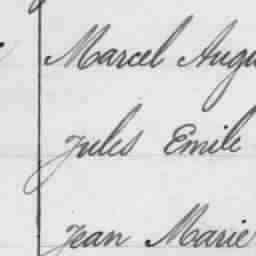 Marcel Augu
Jules Emile
Jean Marie